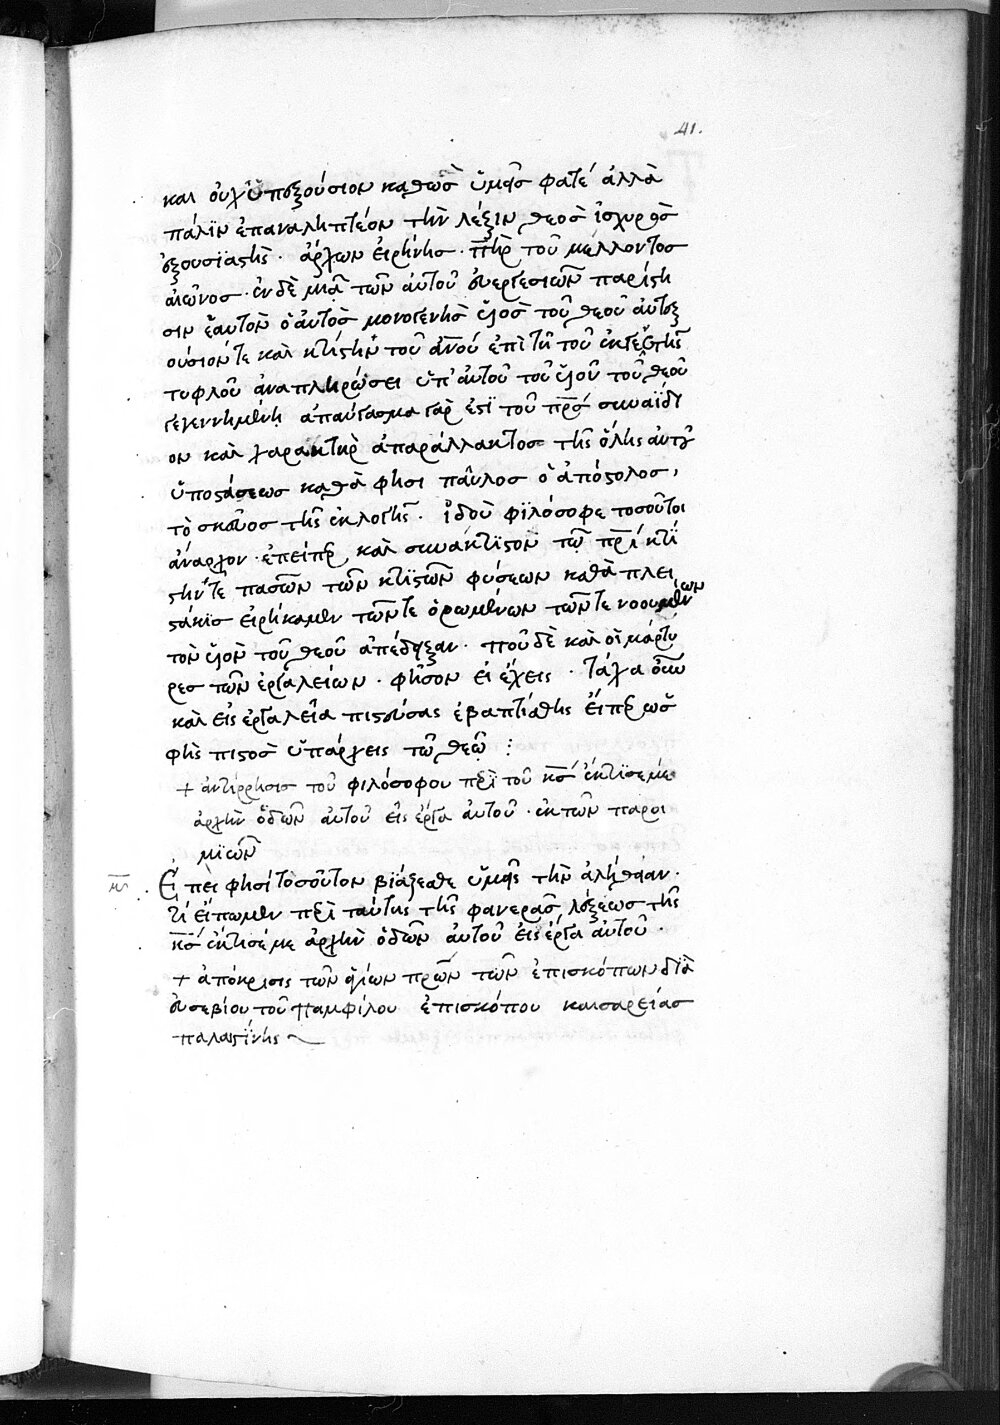 41.
και οὐχ ὑπεξούσιον καθὼς ὑμεῖς φατέ ἀλλὰ
πάλιν ἐπαναληπτέον τὴν λέξιν θεὸς ἰσχυρὸς
ἐξουσϊαστὴς · ἄρχων εἰρήνης · π̅η̅ρ̅ τοῦ μέλλοντος
αἰῶνος · ἐν δὲ μιᾷ τῶν αὐτοῦ εὐεργεσιῶν παρίστη
σιν ἑαυτὸν ὁ αὐτὸς μονογενὴς υἱὸς τοῦ θεοῦ αὐτεξ
ούσιόν τε καὶ κτίστην τοῦ α̅ν̅ο̅υ̅ ἐπὶ τῇ τοῦ ἐκ γενετῆς
τυφλοῦ ἀναπληρώσει ὑπ' αὐτοῦ τοῦ υἱοῦ τοῦ θεοῦ
γεγεννημένῃ ἀπαύγασμα γάρ ἐστϊ τοῦ π̅ρ̅ς̅ συναΐδι
ον καὶ χαρακτὴρ ἀπαράλλακτος τῆς ὅλης αὐτοῦ
ὑποστάσεως καθὰ φησι παῦλος ὁ ἀπόστολος,
τὸ σκεῦος τῆς ἐκλογῆς · ἰδοὺ φϊλόσοφε τοσοῦτοι
ἄναρχον · ἐπείπερ καὶ συνάκτϊστον τῷ π̅ρ̅ι̅ κτί
στην τε πασῶν τῶν κτϊστῶν φύσεων καθὰ πλει
στάκις εἰρήκαμεν τῶν τε ὁρωμένων τῶν τε νοουμένων
τὸν υἱὸν τοῦ θεοῦ ἀπέδειξαν · ποῦ δὲ καὶ οἱ μάρτυ
ρες τῶν ἐργαλείων · φῆσον εἰ ἔχεις · τάχα οὖν
καὶ εἰς ἐργαλεῖα πιστεύσας ἐβαπτίσθης εἴπερ ὡς
φῂς πιστὸς ὑπάρχεις τῷ θεῷ :
+ ἀντίρρησις τοῦ φιλόσοφου περὶ τοῦ κ̅ς̅ ἔκτϊσέ με
ἀρχὴν ὁδῶν αὐτοῦ εἰς ἔργα αὐτοῦ · ἐκ τῶν παροι
μιῶν
Ἐπεὶ φησί τοσοῦτον βιάζεσθε ὑμεῖς τὴν ἀλήθειαν ·
τί εἴπωμεν περὶ ταύτης τῆς φανερᾶς λέξεως τῆς
κ̅ς̅ ἔκτισέ με ἀρχὴν ὁδῶν αὐτοῦ εἰς ἔργα αὐτοῦ ·
+ ἀπόκρισις τῶν ἁγίων π̅ρ̅ων τῶν ἐπισκόπων διὰ
εὐσεβίου τοῦ παμφίλου ἐπισκόπου καισαρείας
παλαιστίνης